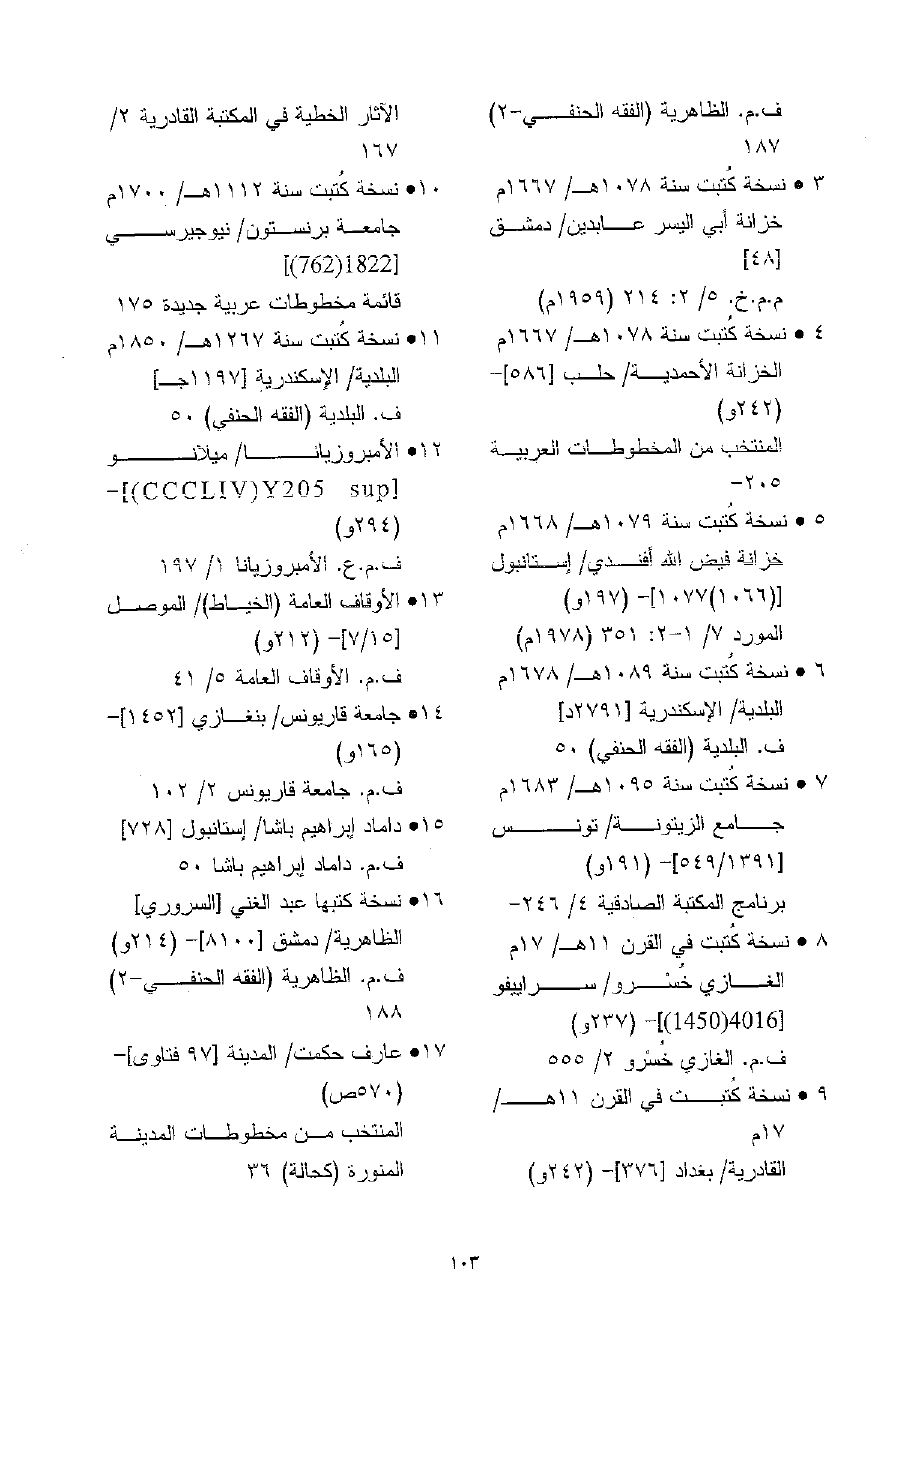 ف.م. الظاهرية (الفقه الحنفي-٢)
١٨٧
٣ • نسخة كُتبت سنة ١٠٧٨هـ/ ١٦٦٧م
خزانة أبي اليسر عابدين/ دمشق
[٤٨]
م.م.خ. ٥/ ٢: ٢١٤ (١٩٥٩م)
٤ • نسخة كُتبت سنة ١٠٧٨هـ/ ١٦٦٧م
الخزانة الأحمدية/ حلب [٥٨٦]-
(٢٤٢و)
المنتخب من المخطوطات العربية
٢٠٥-
٥ • نسخة كُتبت سنة ١٠٧٩هـ/ ١٦٦٨م
خزانة فيض الله أفندي/ إستانبول
[(١٠٦٦)١٠٧٧]- (١٩٧و)
المورد ٧/ ١-٢: ٣٥١ (١٩٧٨م)
٦ • نسخة كُتبت سنة ١٠٨٩هـ/ ١٦٧٨م
البلدية/ الإسكندرية [٢٧٩١د]
ف. البلدية (الفقه الحنفي) ٥٠
٧ • نسخة كُتبت سنة ١٠٩٥هـ/ ١٦٨٣م
جامع الزيتونة/ تونس
[٥٤٩/١٣٩١]- (١٩١و)
برنامج المكتبة الصادقية ٤/ ٢٤٦-
٨ • نسخة كُتبت في القرن ١١هـ/ ١٧م
الغازي خُسْرو/ سراييفو
[4016(1450)]- (٢٣٧و)
ف.م. الغازي خُسْرو ٢/ ٥٥٥
٩ • نسخة كُتبت في القرن ١١هـ/
١٧م
القادرية/ بغداد [٣٧٦]- (٢٤٢و)
الآثار الخطية في المكتبة القادرية ٢/
١٦٧
١٠• نسخة كُتبت سنة ١١١٢هـ/ ١٧٠٠م
جامعة برنستون/ نيوجيرسي
[1822(762)]
قائمة مخطوطات عربية جديدة ١٧٥
١١• نسخة كُتبت سنة ١٢٦٧هـ/ ١٨٥٠م
البلدية/ الإسكندرية [١١٩٧جـ]
ف. البلدية (الفقه الحنفي) ٥٠
١٢• الأمبروزيانا/ ميلانو
[CCCLIV)Y205 sup)]-
(٢٩٤و)
ف.م.ع. الأمبروزيانا ١/ ١٩٧
١٣• الأوقاف العامة (الخياط)/ الموصل
[٧/١٥]- (٢١٢و)
ف.م. الأوقاف العامة ٥/ ٤١
١٤• جامعة قاريونس/ بنغازي [١٤٥٢]-
(١٦٥و)
ف.م. جامعة قاريونس ٢/ ١٠٢
١٥• داماد إبراهيم باشا/ إستانبول [٧٢٨]
ف.م. داماد إبراهيم باشا ٥٠
١٦• نسخة كتبها عبد الغني [السروري]
الظاهرية/ دمشق [٨١٠٠]- (٢١٤و)
ف.م. الظاهرية (الفقه الحنفي-٢)
١٨٨
١٧• عارف حكمت/ المدينة [٩٧ فتاوى]-
(٥٧٠ص)
المنتخب من مخطوطات المدينة
المنورة (كحالة) ٣٦
١٠٣